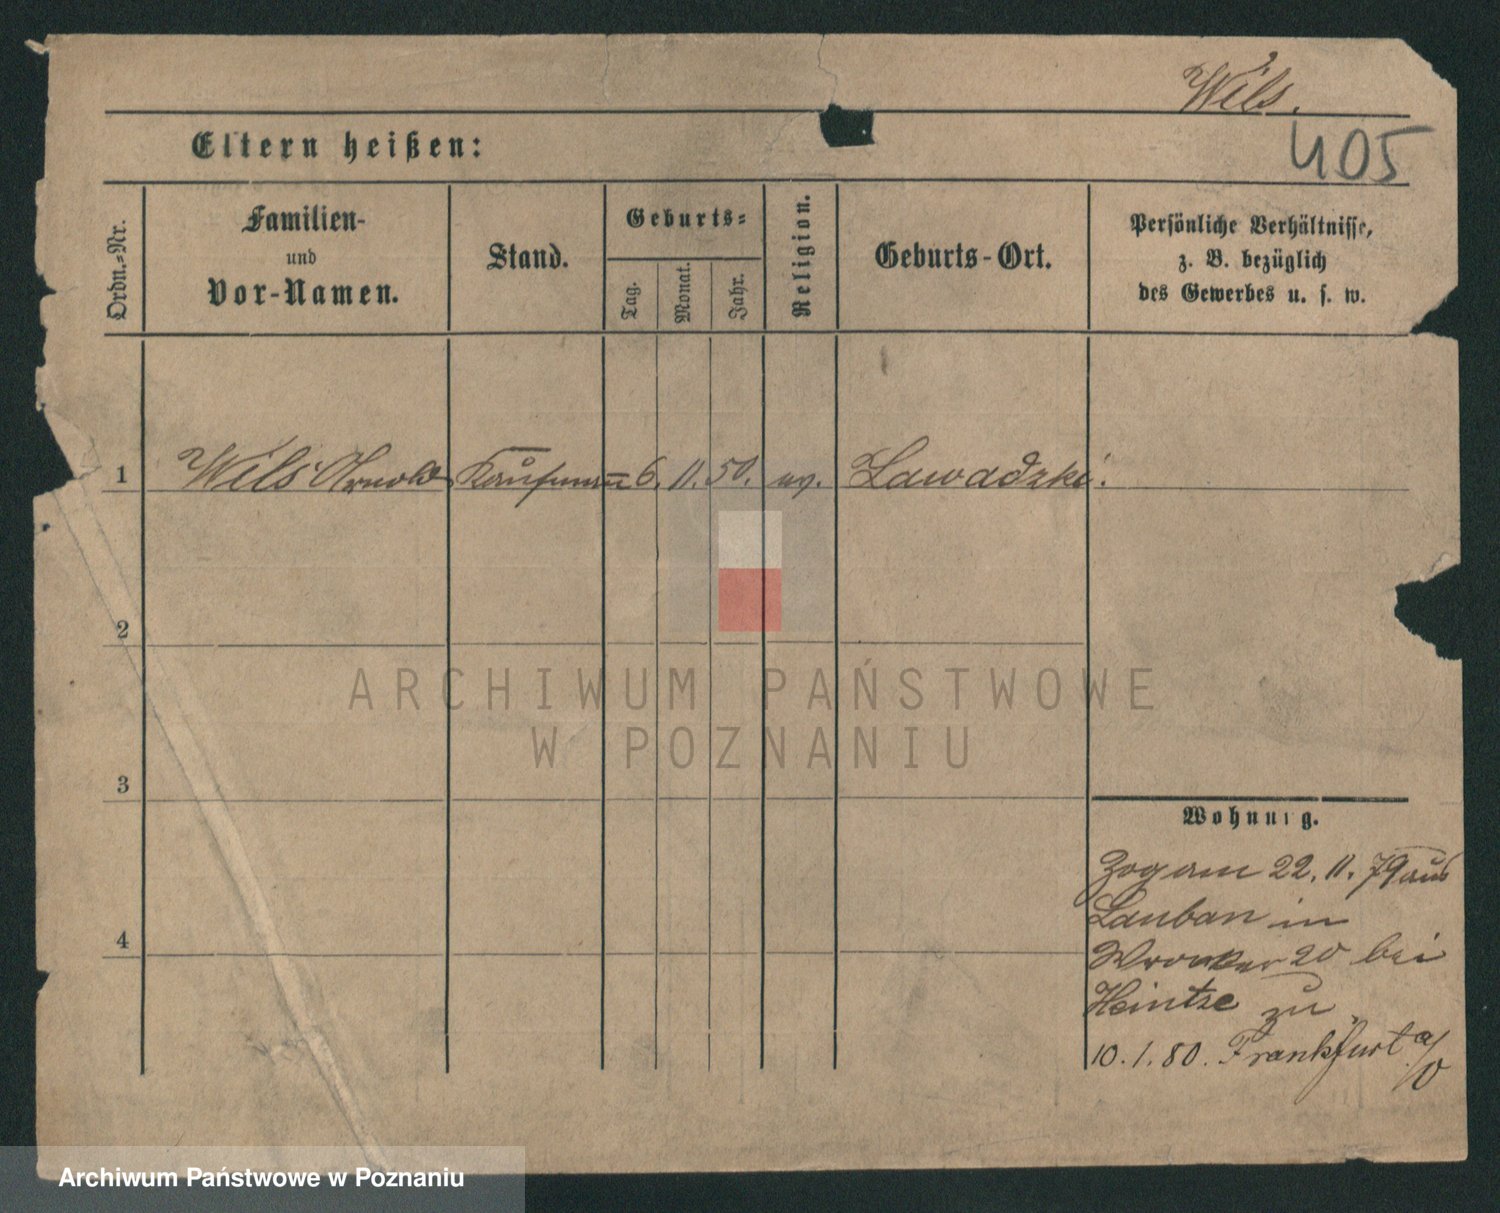 Wils.
405
Eltern heißen:
Ordn.-Nr.
Familien-
und
Vor-Namen.
Stand.
Geburts-
Tag.
Monat.
Jahr.
Religion.
Geburts-Ort.
Persönliche Verhältnisse,
z. B. bezüglich
des Gewerbes u. s. w.
1 Wils Arnold Kaufmann 6. 11. 50. ev. Zawadzki.
2
3
4
Wohnung.
Zog am 22. 11. 79 aus
Lauban in
Wronker 20 bei
Heintze zu
10. 1. 80. Frankfurt a/O
ARCHIWUM PAŃSTWOWE
W POZNANIU
Archiwum Państwowe w Poznaniu